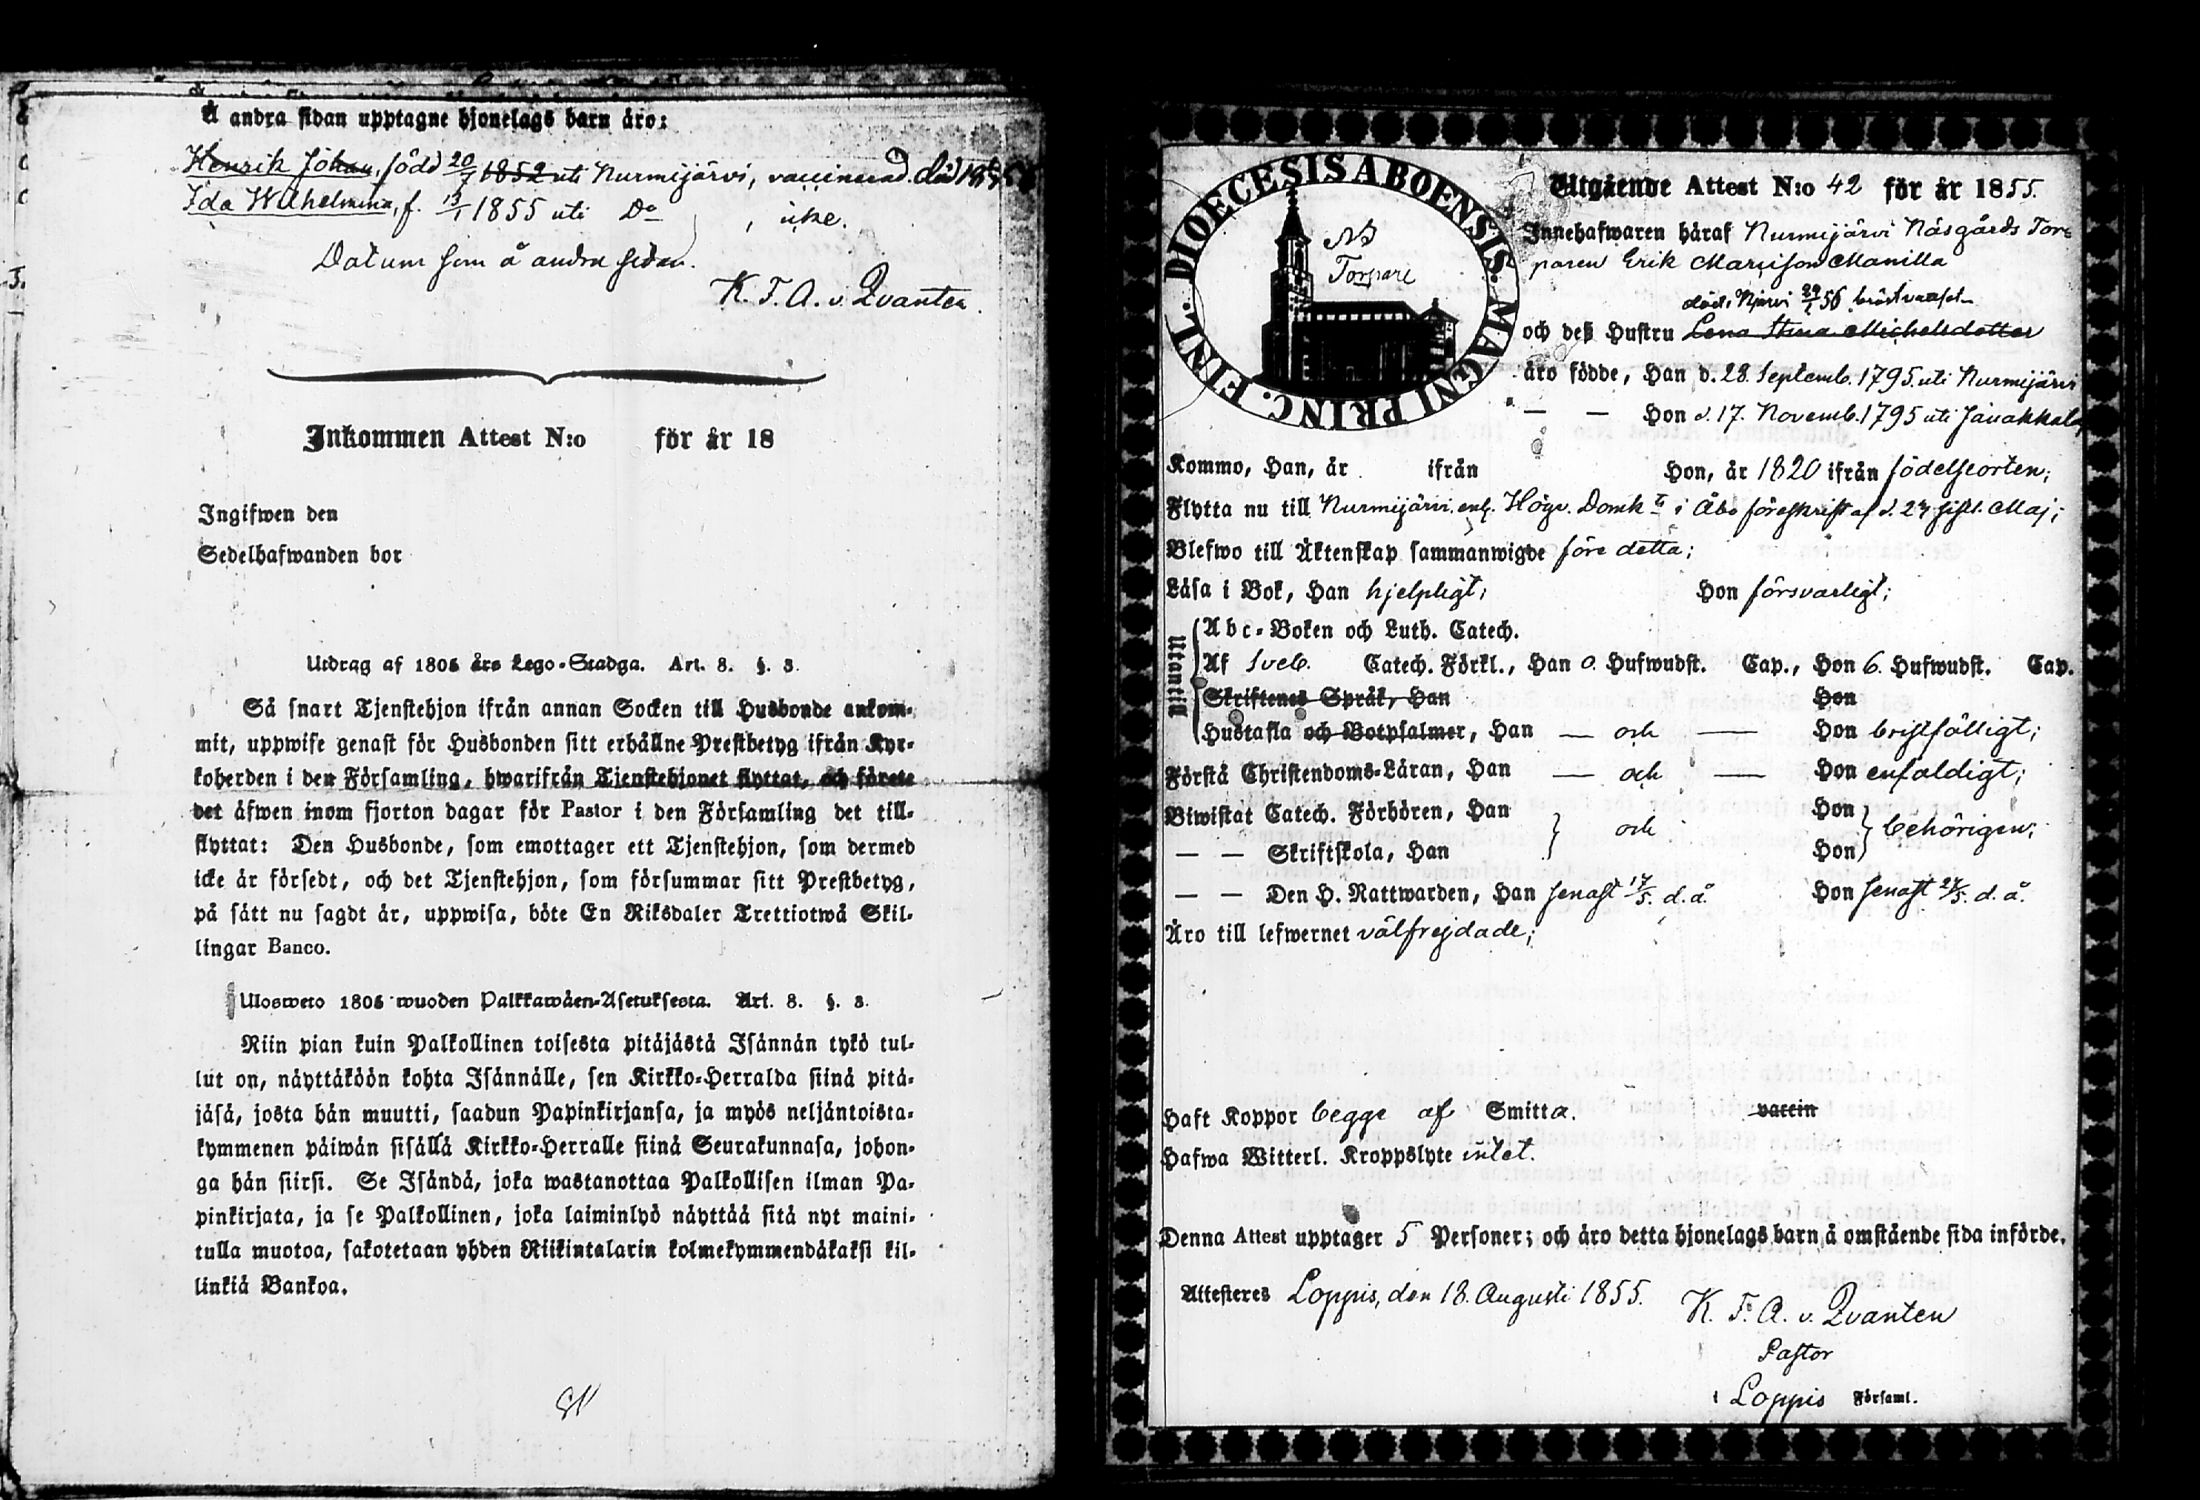 Å andra sidan upptagne hjonelags barn äro:
Henrik Johan, född 20/7 1852 uti Nurmijärvi, vaccinerad. död
Ida Wilhelmina, f. 13/1 1855 uti Do , icke.
Datum som å andra sidan.
K. F. A. v. Qvanten.
Inkommen Attest N:o för år 18
Ingifwen den
Sedelhafwanden bor
Utdrag af 1805 års Lego-Stadga. Art. 8. §. 3.
Så snart Tjenstehjon ifrån annan Socken till Husbonde ankom-
mit, uppwise genast för Husbonden sitt erhållne Prestbetyg ifrån Kyr-
koherden i den Församling, hwarifrån Tjenstehjonet flyttat, och förete
det äfwen inom fjorton dagar för Pastor i den Församling det till-
flyttat: Den Husbonde, som emottager ett Tjenstehjon, som dermed
icke är försedt, och det Tjenstehjon, som försummar sitt Prestbetyg,
på sätt nu sagdt är, uppwisa, böte En Riksdaler Trettiotwå Skil-
lingar Banco.
Ulosweto 1805 wuoden Palkkawäen-Asetuksesta. Art. 8. §. 3.
Niin pian kuin Palkollinen toisesta pitäjästä Isännän tykö tul-
lut on, näyttäköön kohta Isännälle, sen Kirkko-Herralda siinä pitä-
jäsä, josta hän muutti, saadun Papinkirjansa, ja myös neljäntoista-
kymmenen päiwän sisällä Kirkko-Herralle siinä Seurakunnasa, johon-
ga hän siirsi. Se Isändä, joka wastanottaa Palkollisen ilman Pa-
pinkirjata, ja se Palkollinen, joka laiminlyö näyttää sitä nyt maini-
tulla muotoa, sakotetaan yhden Riikintalarin kolmekymmendäkaksi kil-
linkiä Bankoa.
DIOECESIS ABOENSIS. MAGNI PRINC. FINL.
NB
Torpare
Utgående Attest N:o 42 för år 1855.
Innehafwaren häraf Nurmijärvi Näsgårds Tor-
paren Erik Marcisson Manilla
död i Njärvi 56
och deß Hustru Lena Stina Michelsdotter
äro födde, Han d. 28. Septemb. 1795. uti Nurmijärvi
— — Hon d. 17. Novemb. 1795 uti Janakkala,
Kommo, Han, år ifrån Hon, år 1820 ifrån födelseorten;
Flytta nu till Nurmijärvi enl. Högv. Domk:ts i Åbo föreskrift af d. 27 sistl. Maj;
Blefwo till Äktenskap sammanwigde före detta;
Läsa i Bok, Han hjelpligt; Hon försvarligt;
Utantill
Abc-Boken och Luth. Catech.
Af Sveb. Catech. Förkl., Han 0. Hufwudst. Cap., Hon 6. Hufwudst. Cap.
Skriftenes Språk, Han Hon
Hustafla och Botpsalmer, Han — och — Hon bristfälligt;
Förstå Christendoms-Läran, Han — och — Hon enfaldigt;
Biwistat Catech. Förhören, Han och Hon behörigen;
— — Skriftskola, Han Hon
— — Den H. Nattwarden, Han senast 17/5. d. å. Hon senast 27/5. d. å.
Äro till lefwernet välfrejdade;
Haft Koppor begge af Smitta. vaccin
Hafwa Witterl. Kroppslyte intet.
Denna Attest upptager 5 Personer; och äro detta hjonelags barn å omstående sida införde.
Attesteres Loppis, den 18. Augusti 1855.
K. F. A. v. Qvanten
Pastor
i Loppis Församl.